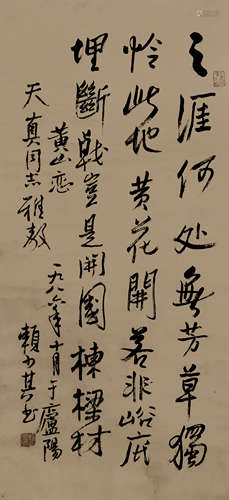 天涯何处无芳草獨
怜此地黄花開若非峪底
埋斷戟豈是開國棟樑材
黄山恋
天真同志雅教
一九八六年十月于廬陽
賴少其书